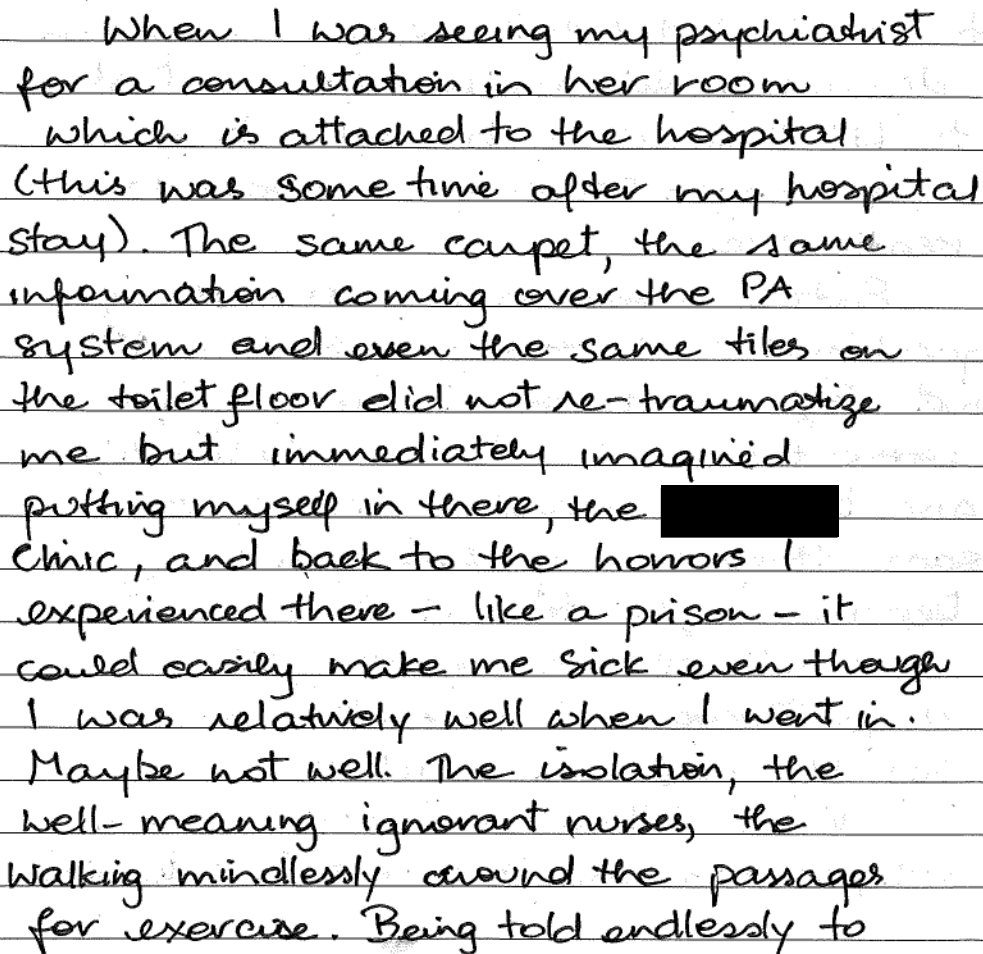 When I was seeing my psychiatrist
for a consultation in her room
which is attached to the hospital
(this was some time after my hospital
stay). The same carpet, the same
information coming over the PA
system and even the same tiles on
the toilet floor did not re-traumatize
me but immediately imagined
putting myself in there, the
Clinic, and back to the horrors I
experienced there - like a prison - it
could easily make me sick even though
I was relatively well when I went in.
Maybe not well. The isolation, the
well-meaning ignorant nurses, the
walking mindlessly around the passages
for exercise. Being told endlessly to